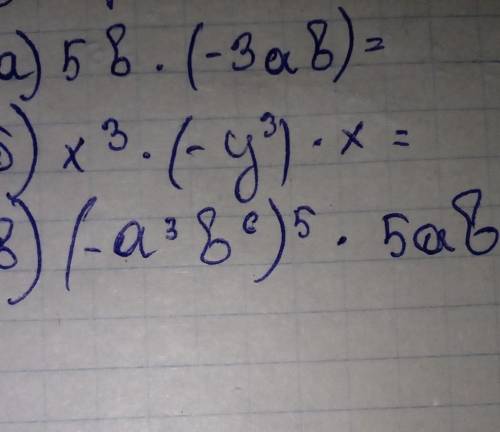 а) 5b · (-3ab) =
б) x³ · (-y³) · x =
в) (-a³b⁶)⁵ · 5ab